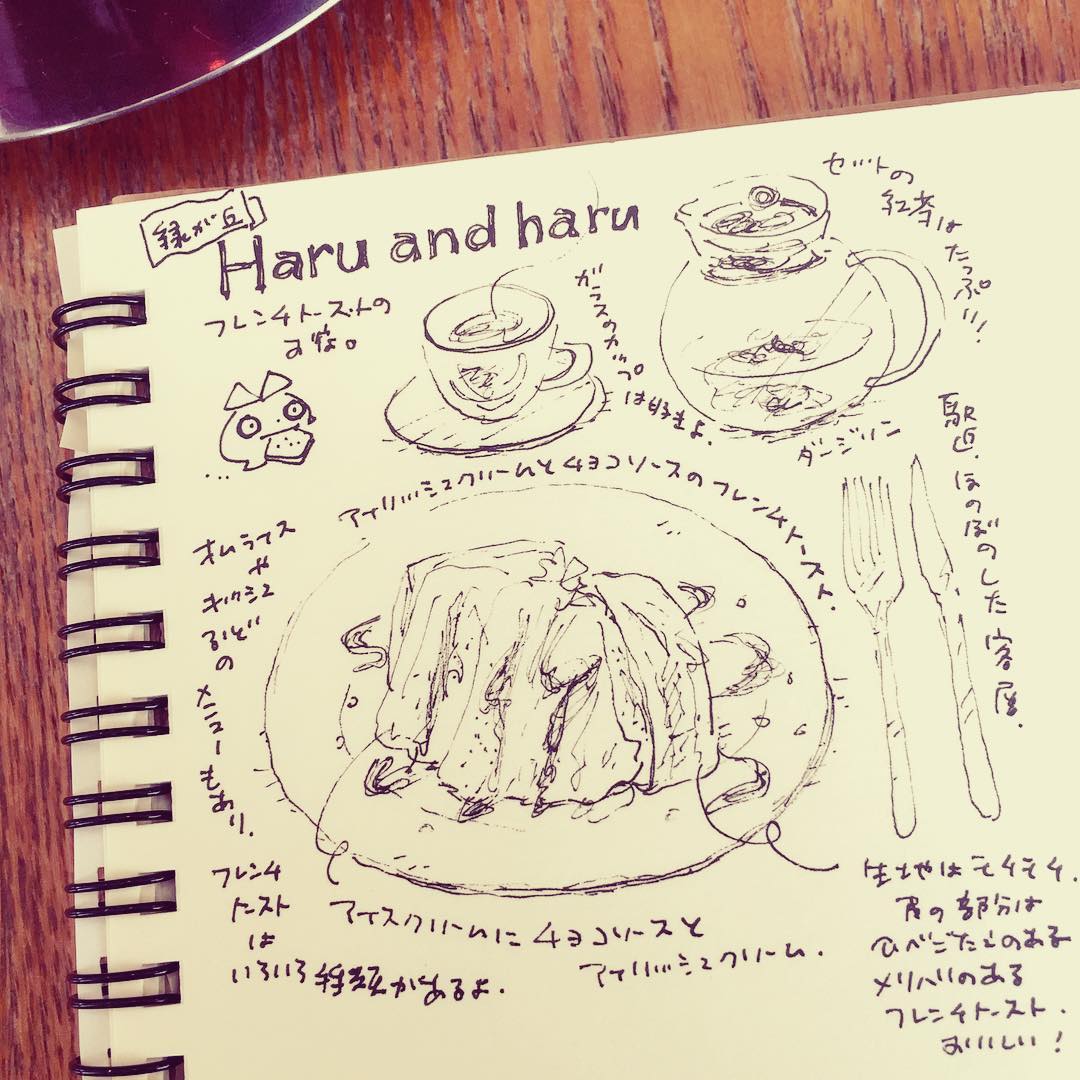 緑が丘
Haru and haru
フレンチトーストの
お店。
ガラスのカップ
は好きよ.
セットの
紅茶は
たっぷり!!
ダージリン
駅近.ほのぼのした客層.
アイリッシュクリームとチョコソースのフレンチトースト.
オムライス
や
キッシュ
などの
メニューもあり.
フレンチ
トースト
は
いろいろ種類があるよ.
アイスクリームにチョコソースと
アイリッシュクリーム.
生地はモチモチ.
皮の部分は
歯ごたえのある
メリハリのある
フレンチトースト.
おいしい!